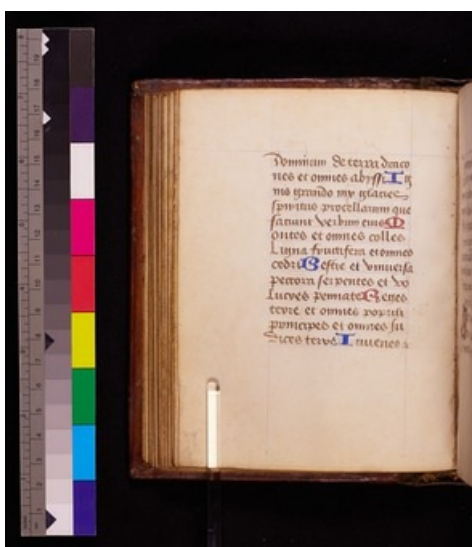 Dominum de terra draco
nes et omnes abyssi Ig
nis grando nix glacies
spiritus procellarum que
faciunt verbum eius M
ontes et omnes colles
Ligna fructifera et omnes
cedri Bestie et vniuersa
peccora serpentes et vo
lucres pennate Reges
terre et omnes populi
principes et omnes iu
dices terre Iuuenes